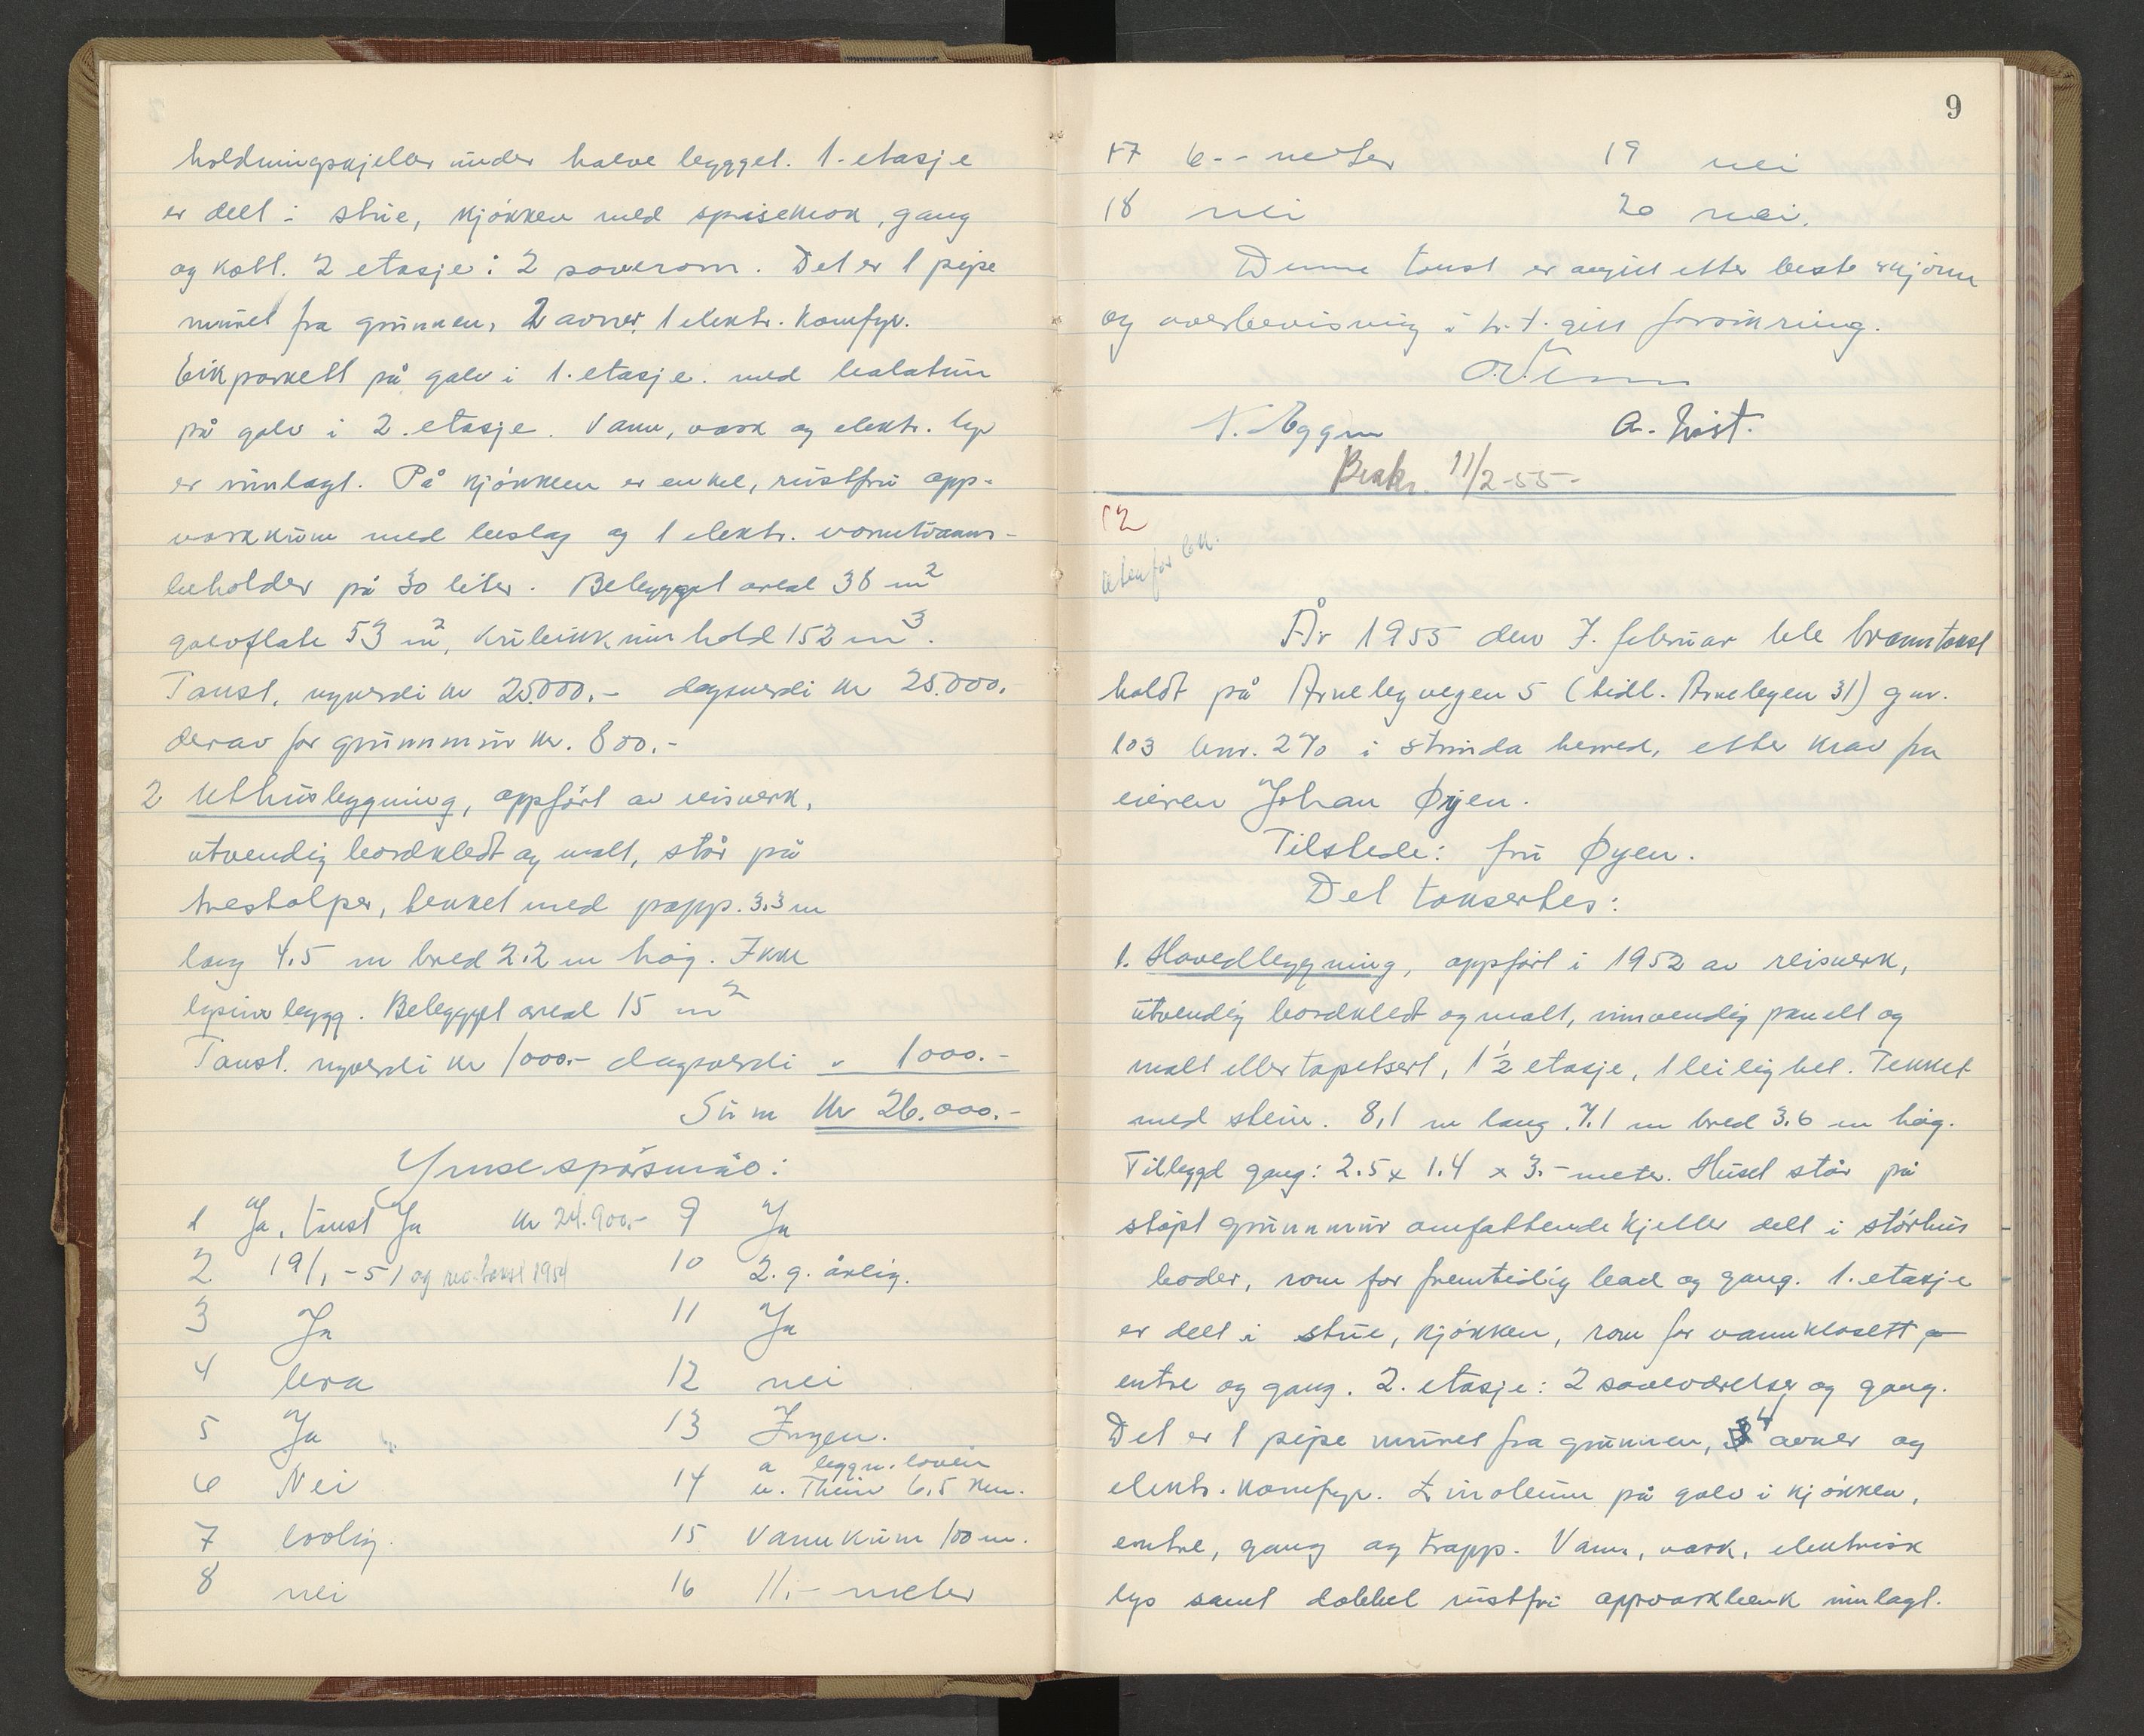 holdningskjeller under halve bygget. 1. etasje
er delt i stue, kjøkken med spisekrok, gang
og kott. 2 etasje: 2 soverom. Det er 1 pipe
muret fra grunnen, 2 ovner, 1 elektr. komfyr.
Eikparkett på golv i 1. etasje. med balatum
på golv i 2. etasje. Vann, vask og elektr. lys
er innlagt. På kjøkken er enkel, rustfri opp-
vaskkum med beslag og 1 elektr. varmtvanns-
beholder på 30 liter. Bebygget areal 38 m²
golvflate 53 m², kubikkinnhold 152 m³.
Takst, nyverdi kr 25.000.- dagsverdi kr 25.000.
derav for grunnmur kr. 800.-
2 Uthusbygning, oppført av reisverk,
utvendig bordkledt og malt, står på
trestolper, tekket med papp. 3.3 m
lang 4.5 m bred 2.2 m høg. Ikke
lysinnlegg. Bebygget areal 15 m²
Takst. nyverdi kr 1000.- dagsverdi " 1000.-
Sum kr 26.000.-
Ymse spørsmål:
1 Ja, takst Ja kr 24.900.- 9 Ja
2 19/1 - 51 og rev. takst 1954 10 2. g. årlig.
3 Ja 11 Ja
4 bra 12 nei
5 Ja 13 Ingen.
6 Nei 14 a bygn. loven
b. Theim 6,5 km.
7 bolig. 15 Vannkum 100 m.
8 nei 16 11.- meter
9
17 6.- meter 19 nei
18 nei 20 nei.
Denne takst er avgitt etter beste skjønn
og overbevisning i h. t. gitt forsikring.
A. Høst.
Bekr. 11/2-55-
12
År 1955 den 7. februar ble branntakst
holdt på Arnebyvegen 5 (tidl. Arnebyen 31) gnr.
103 bnr. 270 i Strinda herred, etter krav fra
eieren Johan Øyen.
Tilstede: fru Øyen.
Det taksertes:
1. Hovedbygning, oppført i 1952 av reisverk,
utvendig bordkledt og malt, innvendig panelt og
malt eller tapetsert, 1 ½ etasje, 1 leilighet. Tekket
med stein. 8,1 m lang 7.1 m bred 3.6 m høg.
Tilbygd gang: 2.5 x 1.4 x 3.- meter. Huset står på
støpt grunnmur omfattende kjeller delt i størhus
boder, rom for fremtidig bad og gang. 1. etasje
er delt i stue, kjøkken, rom for vannklosett
entre og gang. 2. etasje: 2 soveværelser og gang.
Det er 1 pipe muret fra grunnen, 4 ovner og
elektr. komfyr. Linoleum på golv i kjøkken,
entre, gang og trapp. Vann, vask, elektrisk
lys samt dobbel rustfri oppvaskbenk innlagt.